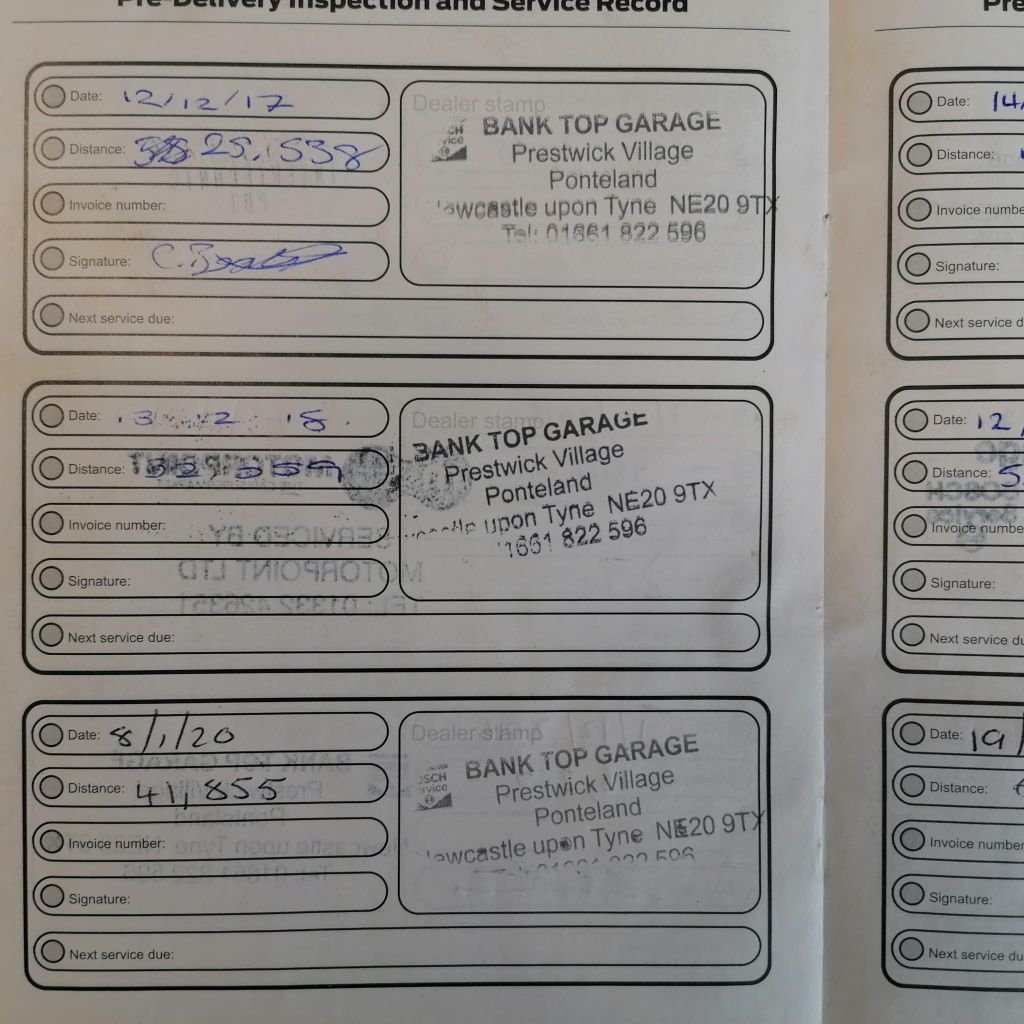 Pre-Delivery Inspection and Service Record
Date: 12/12/17
Distance: 25,538
Invoice number:
Signature: C.
Next service due:
Dealer stamp
BANK TOP GARAGE
Prestwick Village
Ponteland
ewcastle upon Tyne NE20 9TX
Tel: 01661 822 596
Date: 13 12 18
Distance: 32
Invoice number:
Signature:
Next service due:
Dealer stamp
BANK TOP GARAGE
Prestwick Village
Ponteland
upon Tyne NE20 9TX
1661 822 596
SERVICED BY
MOTORPOINT LTD
Date: 8/1/20
Distance: 41,855
Invoice number:
Signature:
Next service due:
Dealer stamp
OSCH
ervice
BANK TOP GARAGE
Prestwick Village
Ponteland
ewcastle upon Tyne NE20 9TX
Pre
Date: 14/
Distance:
Invoice numbe
Signature:
Next service d
Date: 12/
Distance: 5
Invoice numbe
Signature:
Next service du
Date: 19/
Distance:
Invoice number
Signature:
Next service du